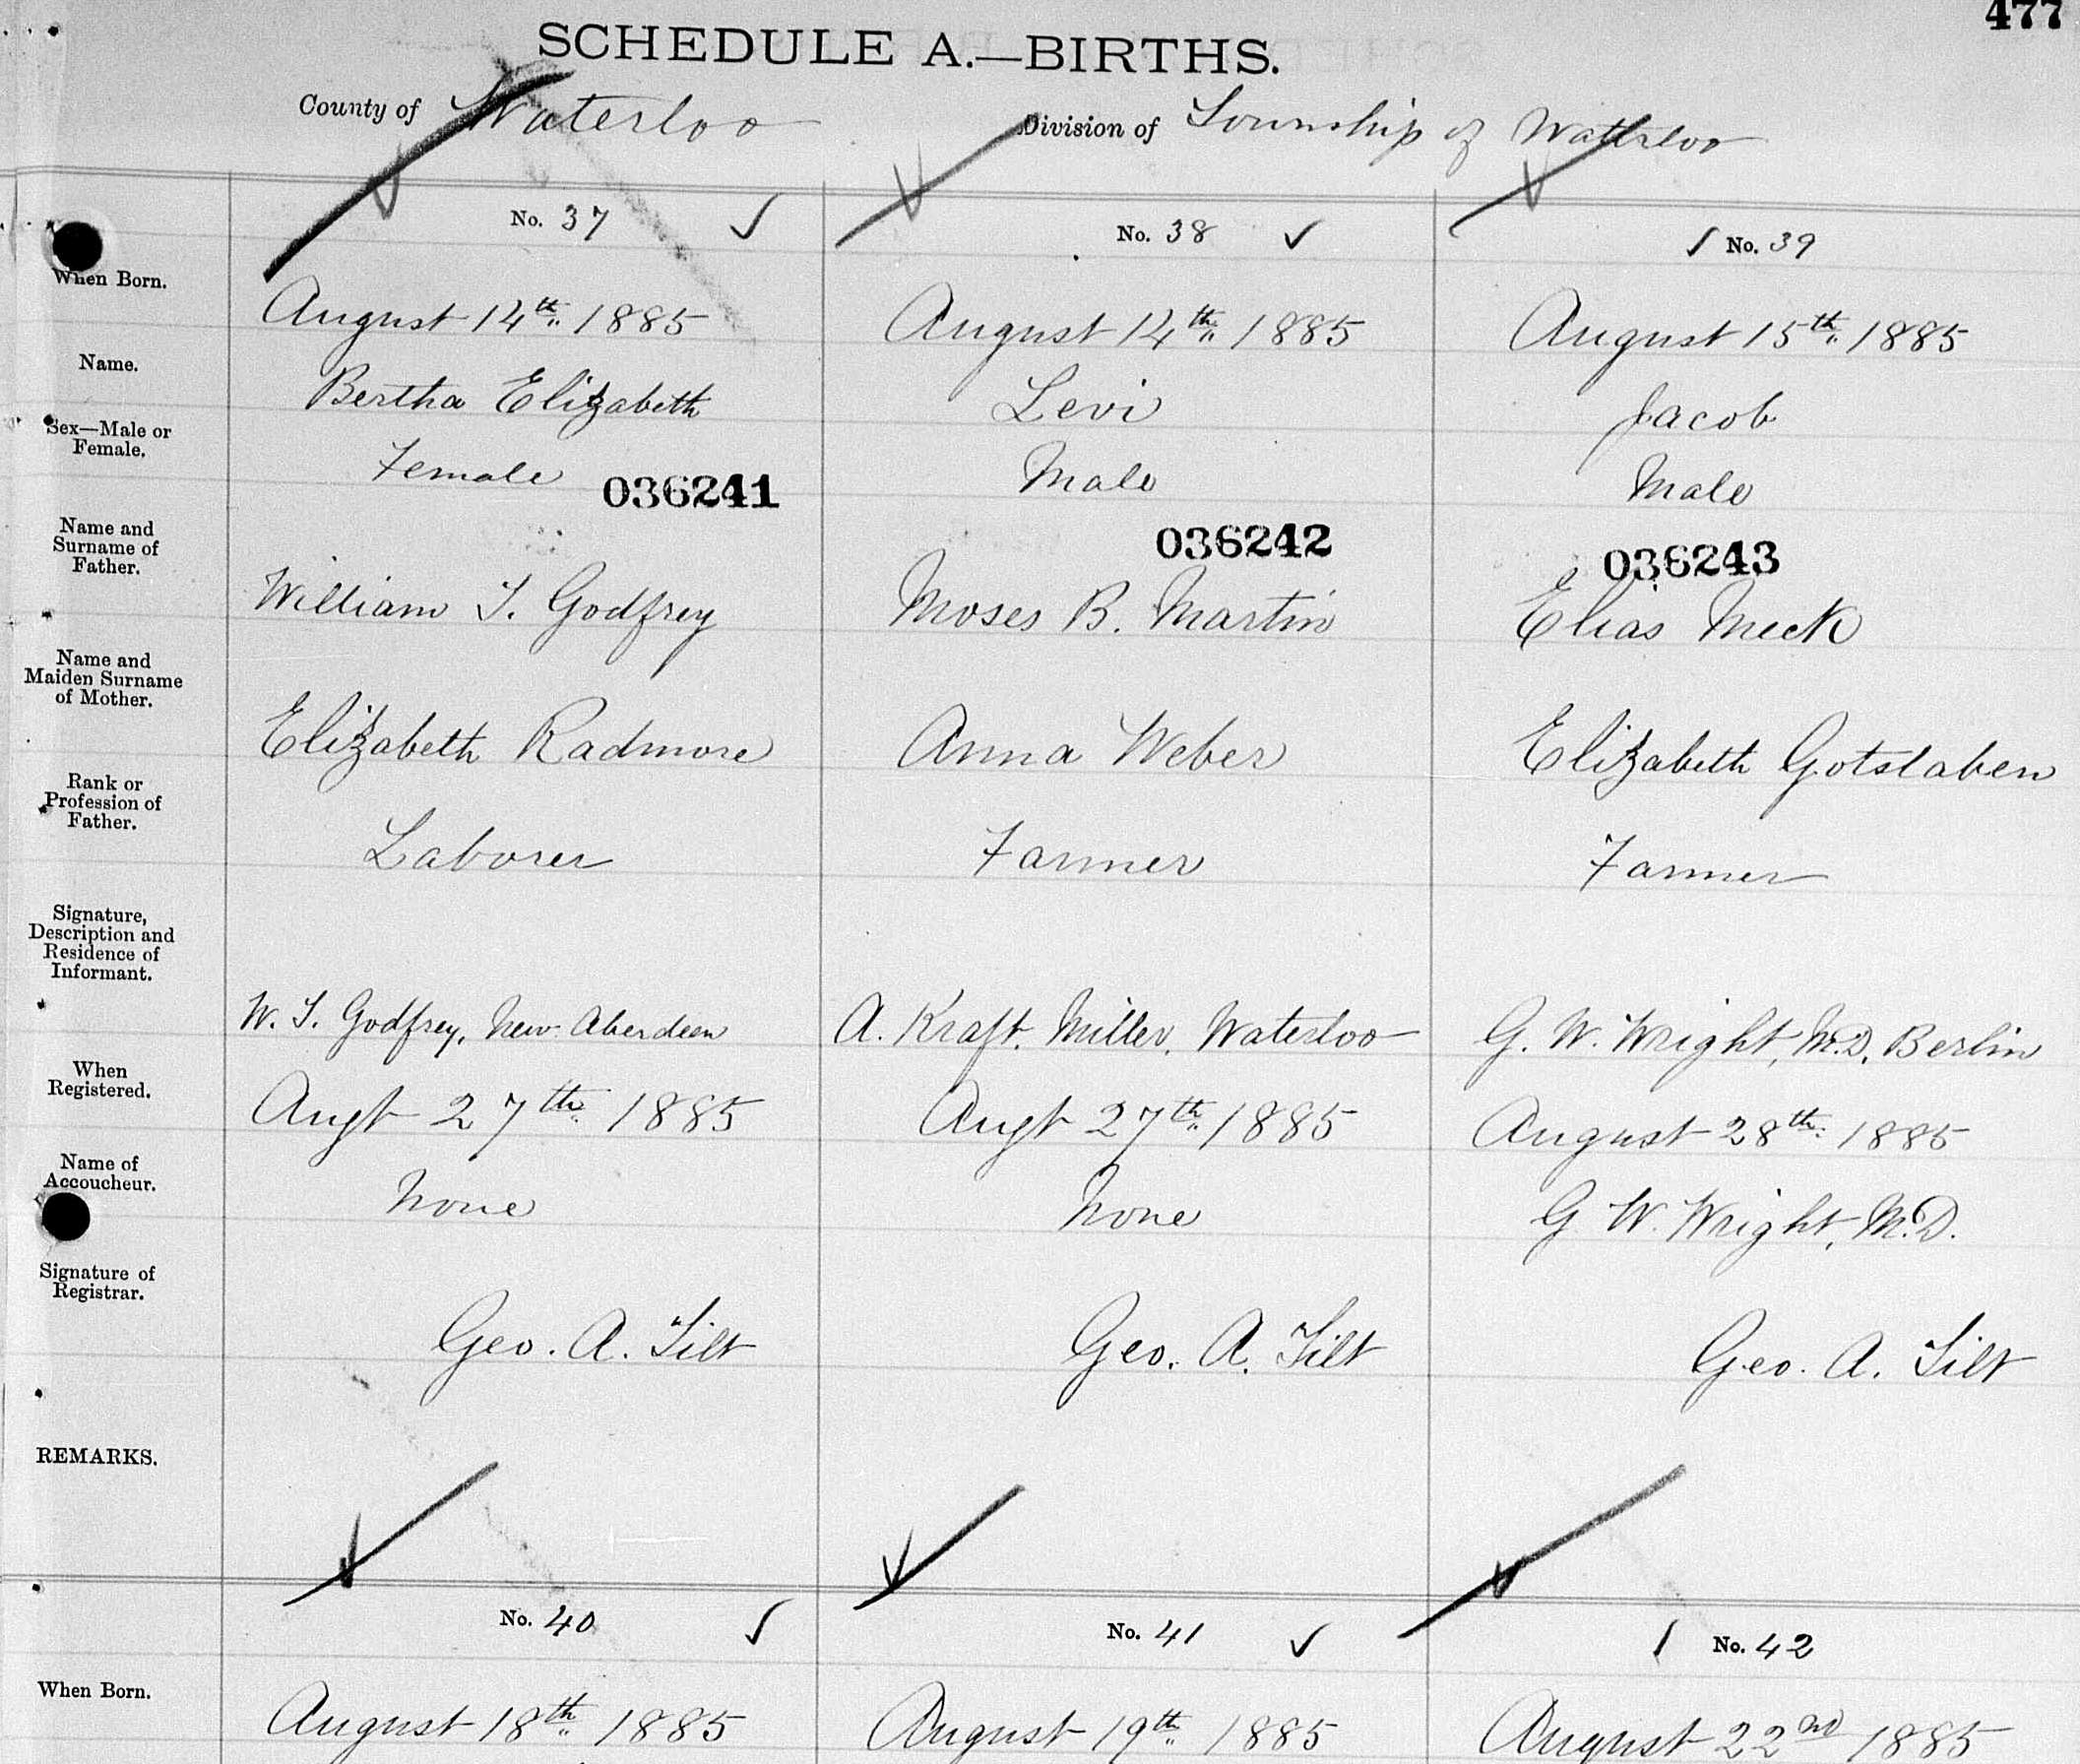 477
SCHEDULE A.—BIRTHS.
County of Waterloo Division of Township of Waterloo
No. 37 No. 38 No. 39
When Born. August 14th 1885 August 14th 1885 August 15th 1885
Name. Bertha Elizabeth Levi Jacob
Sex—Male or Female. Female Male Male
036241 036242 036243
Name and Surname of Father. William T. Godfrey Moses B. Martin Elias Meck
Name and Maiden Surname of Mother. Elizabeth Radmore Anna Weber Elizabeth Gotslaben
Rank or Profession of Father. Laborer Farmer Farmer
Signature, Description and Residence of Informant. W. T. Godfrey, New Aberdeen A. Kraft, Miller, Waterloo G. W. Wright, M.D. Berlin
When Registered. Augt 27th 1885 Augt 27th 1885 August 28th 1885
Name of Accoucheur. None None G. W. Wright, M.D.
Signature of Registrar. Geo. A. Tilt Geo. A. Tilt Geo. A. Tilt
REMARKS.
No. 40 No. 41 No. 42
When Born. August 18th 1885 August 19th 1885 August 22nd 1885